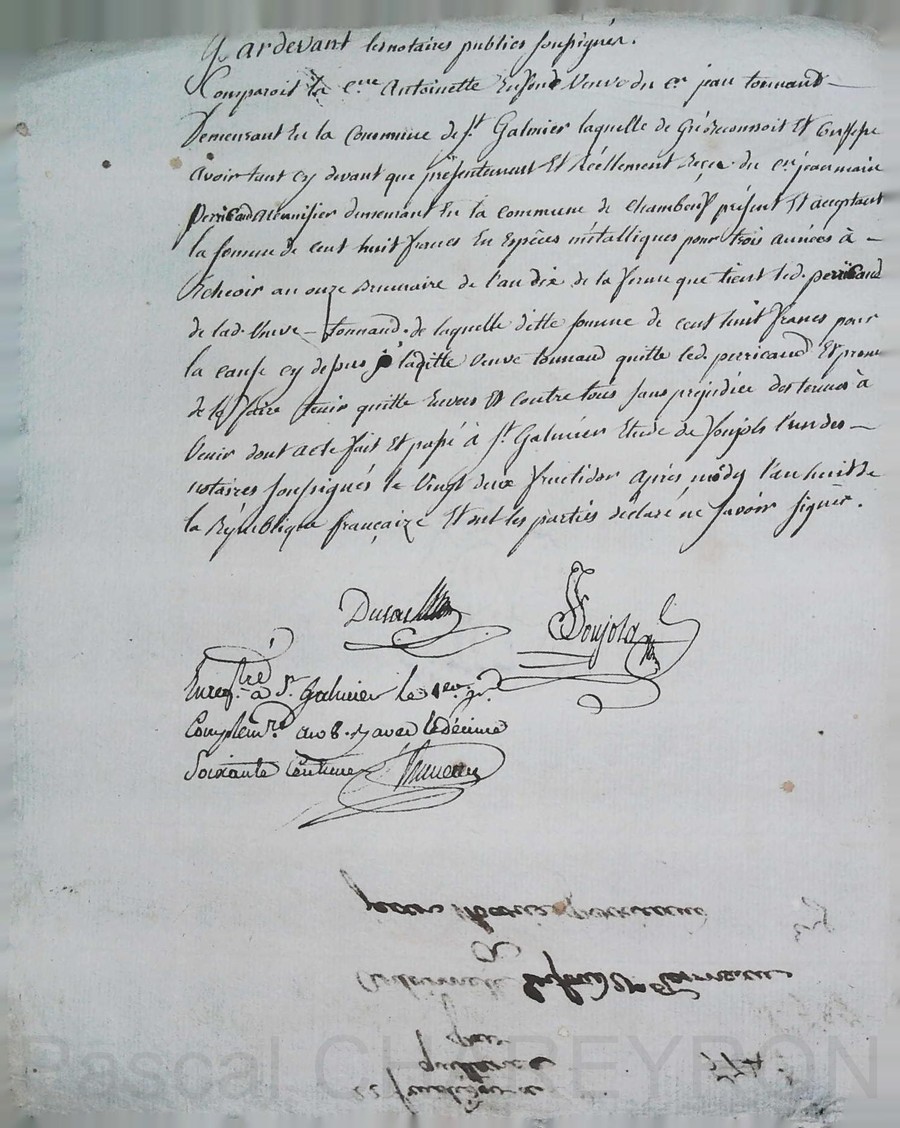 Pardevant les notaires publics soussignés.
Comparoit la c.ne Antoinette Enfond Veuve du c.en jean tonnand –
Demeurant En la Commune de s.t Galmier laquelle de Gré Reconnoit Et Confesse
avoir tant cy devant que présentement Et Réellement Reçu du c.en jean marie
perricaud demeurant En la commune de chambeuf présent Et acceptant
la somme de cent huit francs En Espèces métalliques pour trois années à –
Echeoir au onze Brumaire de l'an dix de la ferme que tient led. perricaud
de lad. Veuve – tonnand. de laquelle ditte somme de cent huit francs pour
la cause cy dessus laditte Veuve tonnand quitte led. perricaud Et prome
de le faire tenir quitte Envers Et contre tous sans préjudice des termes à
Venir dont acte fait Et passé à s.t Galmier Etude de Soujols l'un des –
notaires soussignés le Vingt deux fructidor après midy l'an huit de
la République française Et ont les parties déclaré ne savoir signer.
Soujols
Enreg.tré à S.t Galmier le 1.er j.r
Complem.re an 8. r avec le décime
Soixante Centimes
jean Marie perricaud
a
antoinette Enfond V.e Tonnand
par
quittance
22 fructidor an 8
Pascal CHAREYRON